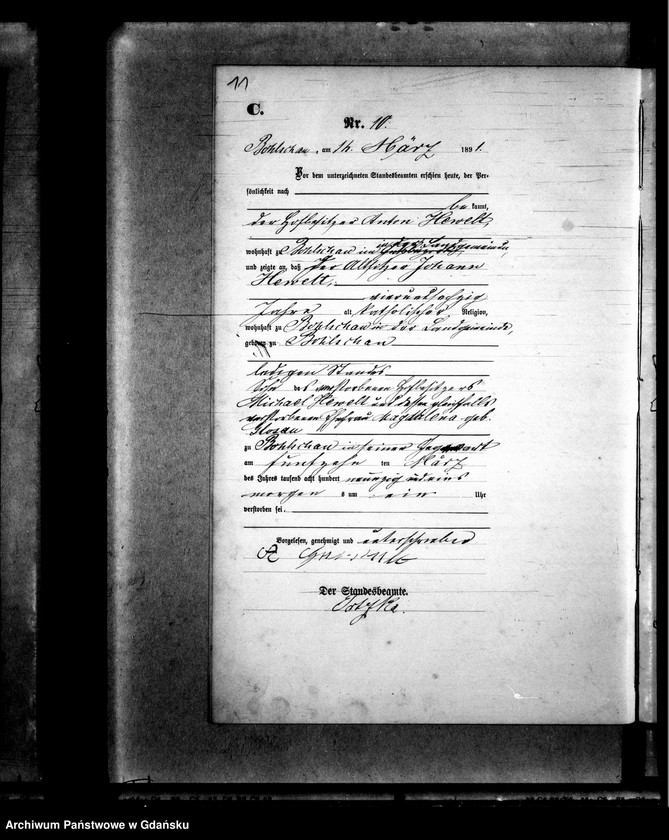 11
C.
Nr. 10.
Bohlschau, am 14. März 1891.
Vor dem unterzeichneten Standesbeamten erschien heute, der Per-
sönlichkeit nach
be kannt,
der Hofbesitzer Anton Hewelt,
in der Landgemeinde,
wohnhaft zu Bohlschau im
und zeigte an, daß Der Altsitzer Johann
Hewelt,
vierundsechzig
Jahre alt, katholischer Religion,
wohnhaft zu Bohlschau in der Landgemeinde,
geboren zu Bohlschau
ledigen Standes
Sohn des verstorbenen Hofbesitzers
Michael Hewelt und dessen gleichfalls
verstorbenen Ehefrau Magdalena geb.
zu Bohlschau in seiner Gegenwart
am ten März
des Jahres tausend acht hundert neunzig und eins
morgens um ein Uhr
verstorben sei.
Vorgelesen, genehmigt und unterschrieben
Der Standesbeamte.
Archiwum Państwowe w Gdańsku